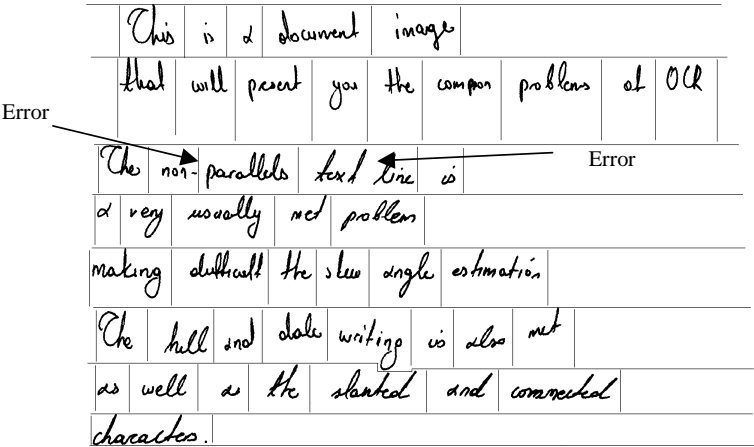 This is a document image
that will present you the common problems of OCR
Error
The non-parallels text line is
Error
a very usually met problem
making difficult the skew angle estimation
The hill and dale writing is also met
as well as the slanted and connected
charactes.